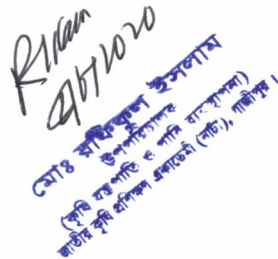 RIslam
মোঃ রফিকুল ইসলাম
উপপরিচালক
(কৃষি যন্ত্রপাতি ও পানি ব্যবস্থাপনা)
জাতীয় কৃষি প্রশিক্ষণ একাডেমী (নাটা), গাজীপুর।